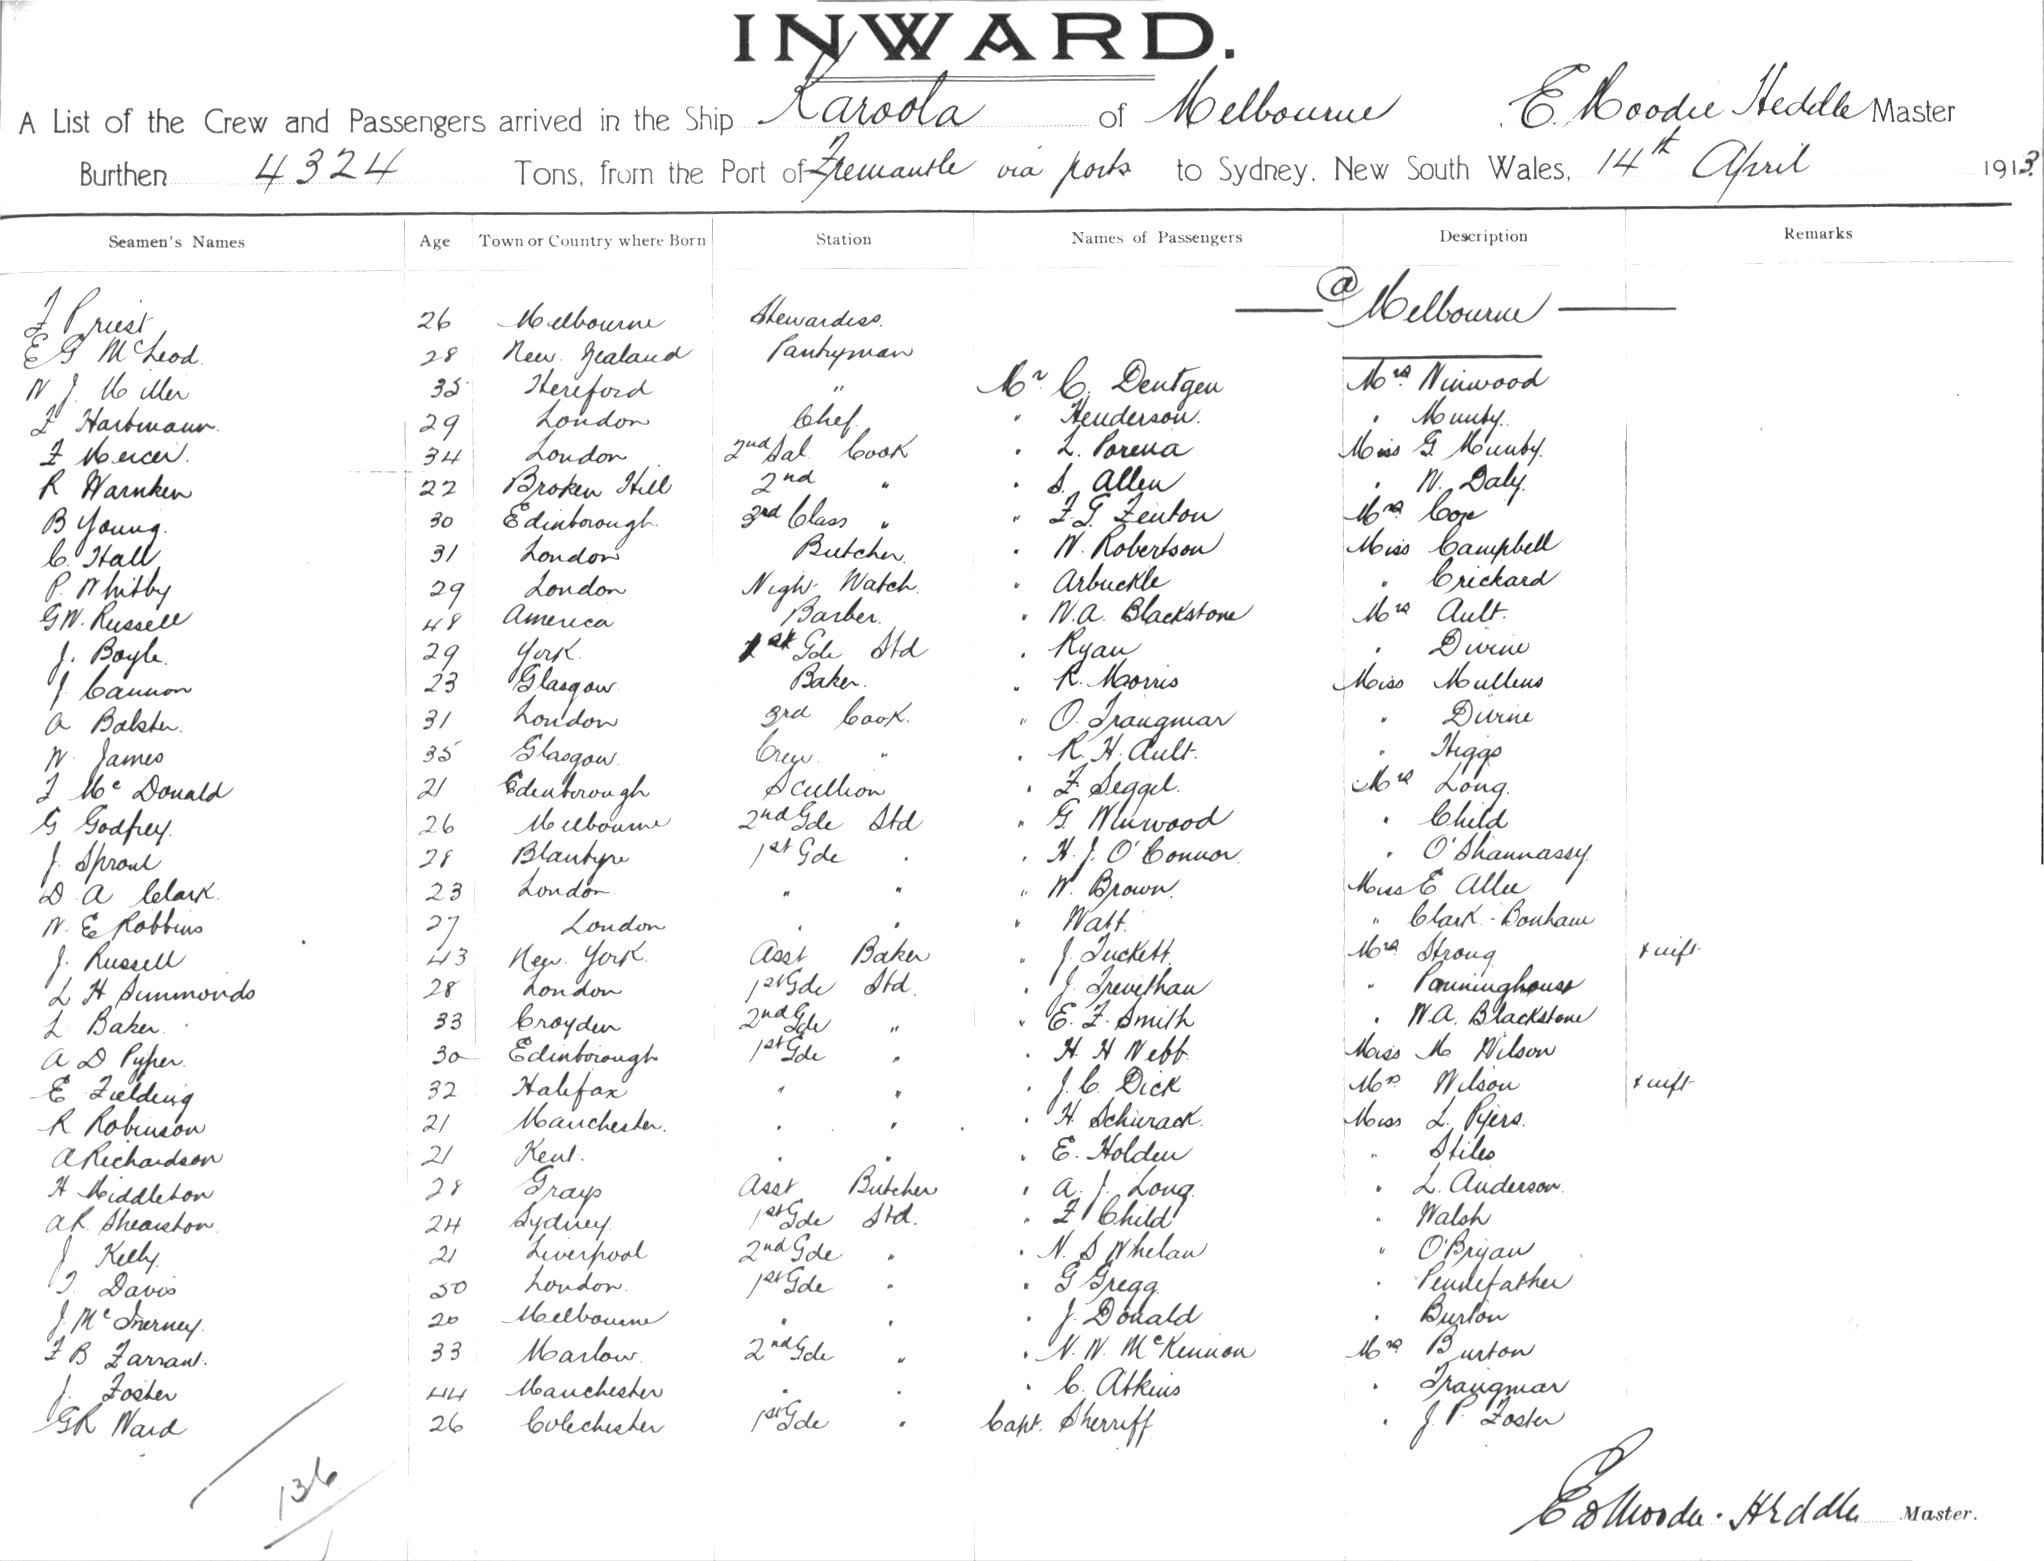 INWARD.
A List of the Crew and Passengers arrived in the Ship Karoola of Melbourne E. Moodie Heddle Master
Burthen 4324 Tons, from the Port of Fremantle via ports to Sydney, New South Wales, 14th April 1913.
Seamen's Names Age Town or Country where Born Station Names of Passengers Description Remarks
@ Melbourne
F Priest 26 Melbourne Stewardess
E G McLeod 28 New Zealand Pantryman
W J Miller 35 Hereford " Mr C. Dentgen Mrs Winwood
F Hartmann 29 London Chef " Henderson " Munby
F Mercer 34 London 2nd Sal. Cook " L. Porena Miss G Munby
R Warnken 22 Broken Hill 2nd " " S. Allen " W. Daly
B Young 30 Edinborough 3rd Class " " F. G. Fenton Mrs Cox
C. Hall 31 London Butcher " W. Robertson Miss Campbell
P. Whitby 29 London Nigh Watch " Arbuckle " Crickard
G W. Russell 48 America Barber " W. A. Blackstone Mrs Ault
J. Boyle 29 York 1st Gde Std " Ryan " Divine
J Cannon 23 Glasgow Baker " R. Morris Miss Mullens
A Balster 31 London 3rd Cook " O. Trangmar " Divine
W James 35 Glasgow Crew " " R. H. Ault " Higgs
F McDonald 21 Edinborough Scullion " F. Seggel Mrs Long
G Godfrey 26 Melbourne 2nd Gde Std " G. Winwood " Child
J. Sproul 28 Blantyre 1st Gde " " H. J. O'Connor " O'Shannassy
D A Clark 23 London " " " W. Brown Miss E Allee
W. E Robbins 27 London " " " Watt " Clark-Bonham
J. Russell 43 New York Asst Baker " J. Tuckett Mrs Strong
L H Simmonds 28 London 1st Gde Std " J. Trevethan " Panninghouse
L Baker 33 Croyden 2nd Gde " " E. F. Smith " W. A. Blackstone
A D Pyper 30 Edinborough 1st Gde " " H. H Webb Miss M Wilson
E Fielding 32 Halifax " " " J. C. Dick Mrs Wilson
R Robinson 21 Manchester " " " H. Schwack Miss L. Pyers
A Richardson 21 Kent " " " E. Holden " Stiles
H Middleton 28 Grays Asst Butcher " A. J. Long " L. Anderson
A R. Shearston 24 Sydney 1st Gde Std. " F Child " Walsh
J Kelly 21 Liverpool 2nd Gde " " N. S Whelan " O'Bryan
T. Davis 50 London 1st Gde " " G Gregg " Pennefather
J. McInerney 20 Melbourne " " " J. Donald " Burton
F B Farrant 33 Marlow 2nd Gde " " N. W. McKennon Mrs Burton
J. Foster 44 Manchester " " " C. Atkins " Trangmar
G R Ward 26 Colechester 1st Gde " Capt. Sherriff " J. P. Foster
136
E Moodie Heddle Master.